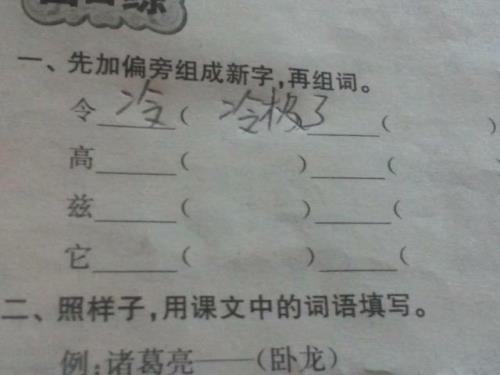 一、先加偏旁组成新字,再组词。
令 冷 ( 冷极了 ____ ( )
高____( )____(
兹____( )____(
它____( )____(
二、照样子,用课文中的词语填写。
例:诸葛亮——(卧龙)